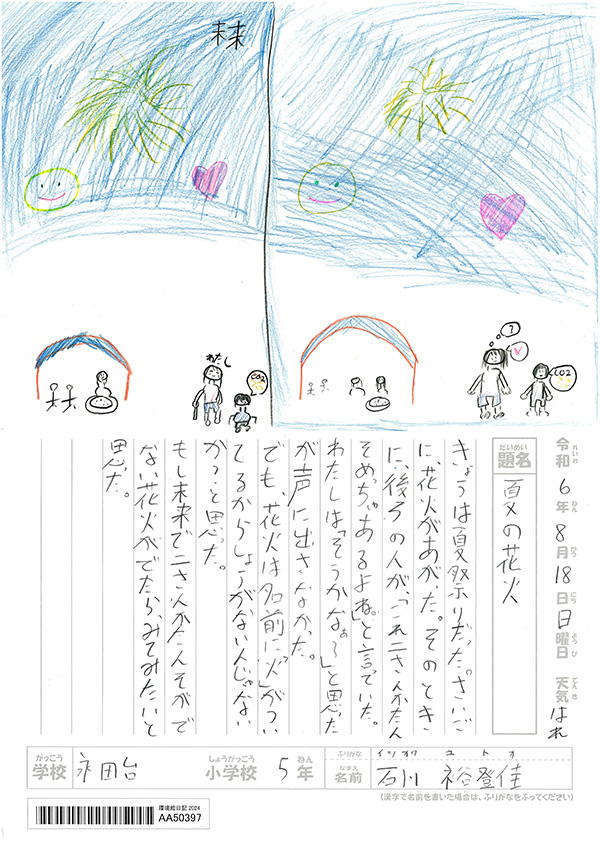 未来
わたし
CO2
?
CO2
令和6年8月18日日曜日 天気 はれ
れいわ ねん がつ にち ようび てんき
だいめい
題名
夏の花火
きょうは夏祭りだった。さいご
に、花火があがった。そのとき
に、後ろの人が、「これ二さんかたん
そめっちゃあるよね。」と言っていた。
わたしは「そうかなぁ〜」と思った
が声に出さなかった。
でも、花火は名前に"火"がつい
てるからしょうがないんじゃない
かつと思った。
もし未来で二さんかたんそがで
ない花火がでたら、みてみたいと
思った。
がっこう
学校
永田台
しょうがっこう
小学校
5
ねん
年
ふりがな
イシカワ ユトカ
なまえ
名前
石川 裕登佳
(漢字で名前を書いた場合は、ふりがなをふってください)
環境絵日記 2024
AA50397